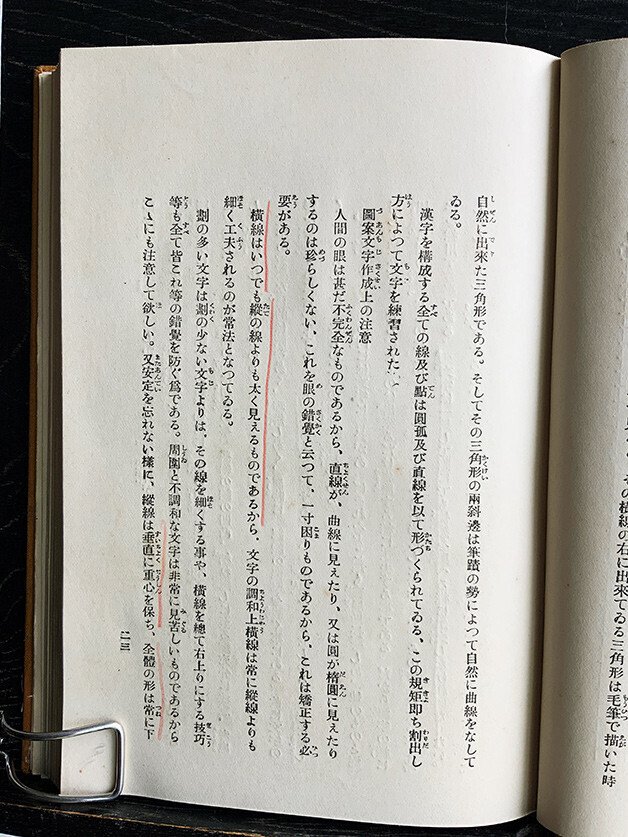 た。その横線の右に出來てゐる三角形は毛筆で描いた時
自然に出來た三角形である。そしてその三角形の兩斜邊は筆蹟の勢によつて自然に曲線をなして
ゐる。
漢字を構成する全ての線及び點は圓孤及び直線を以て形づくられてゐる、この規矩即ち割出し
方によつて文字を練習された…
圖案文字作成上の注意
人間の眼は甚だ不完全なものであるから、直線が、曲線に見えたり、又は圓が楕圓に見えたり
するのは珍らしくない、これを眼の錯覺と云つて、一寸困りものであるから、これは矯正する必
要がある。
橫線はいつでも縱の線よりも太く見えるものであるから、文字の調和上橫線は常に縱線よりも
細く工夫されるのが常法となつてゐる。
劃の多い文字は劃の少ない文字よりは、その線を細くする事や、橫線を總て右上りにする技巧
等も全て皆これ等の錯覺を防ぐ爲である。周圍と不調和な文字は非常に見苦しいものであるから
こゝにも注意して欲しい。又安定を忘れない樣に、縱線は垂直に重心を保ち、全體の形は常に下
二十三